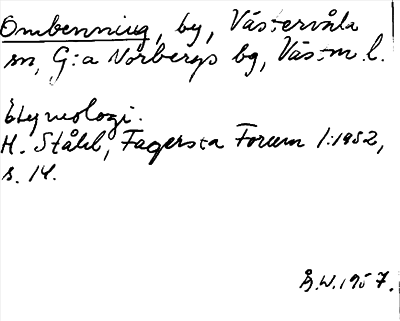 Ombenning, by, Västervåla
sn, G:a Norbergs bg, Västm. l.
Etymologi.
H. Ståhl, Fagersta Forum 1:1952,
s. 14.
Å.W. 1957.